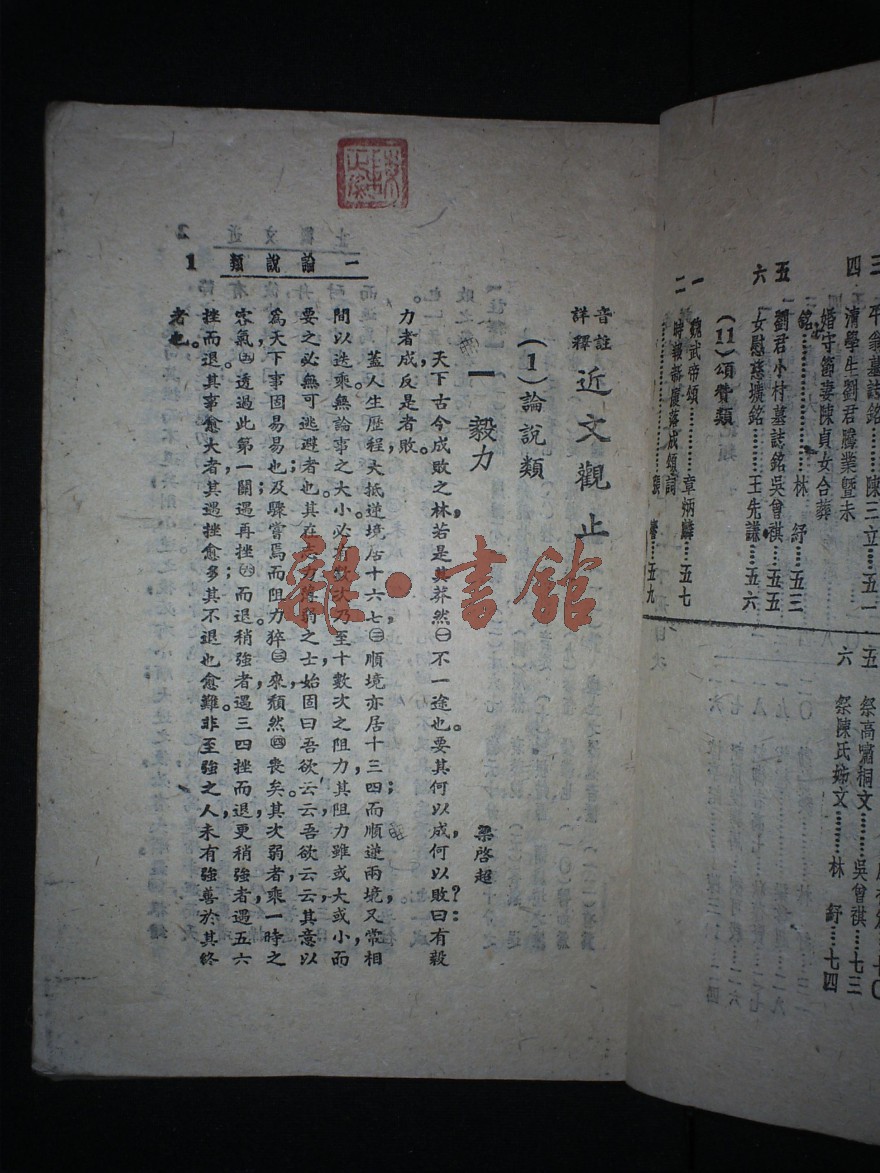 三 平翁墓誌銘……陳三立…五一
四 清學生劉君騰業暨未
婚守節妻陳貞女合葬
銘……林 紓…五三
五 劉君小村墓誌銘吳曾祺…五五
六 女慰慈壙銘……王先謙…五六
(11)頌贊類
一 魏武帝頌……章炳麟…五七
二 時報新屋落成頌詞
謇…五九
五 祭高嘯桐文……吳曾祺…七三
六 祭陳氏姊文……林 紓…七四
一 論說類 1
音註詳釋 近文觀止
(1)論說類
一 毅力 梁啓超
天下古今成敗之林,若是其莽然㊀不一途也。要其何以成,何以敗?曰:有毅
力者成,反是者敗。
蓋人生歷程,大抵逆境居十六七㊁,順境亦居十三四;而順逆兩境,又常相
間以迭乘。無論事之大小,必有數次乃至十數次之阻力。其阻力雖或大或小,而
要之必無可逃避者也。其在志力薄弱之士,始固曰吾欲云云,吾欲云云,其意以
爲天下事固易易也;及驟嘗焉而阻力猝㊂來,頹然㊃喪矣。其次弱者,乘一時之
客氣㊄,透過此第一關,遇再挫㊅而退;稍強者,遇三四挫而退;更稍強者,遇五六
挫而退;其事愈大者,其遇挫愈多;其不退也愈難,非至強之人,未有能善於其終
者也。
雜·書舘